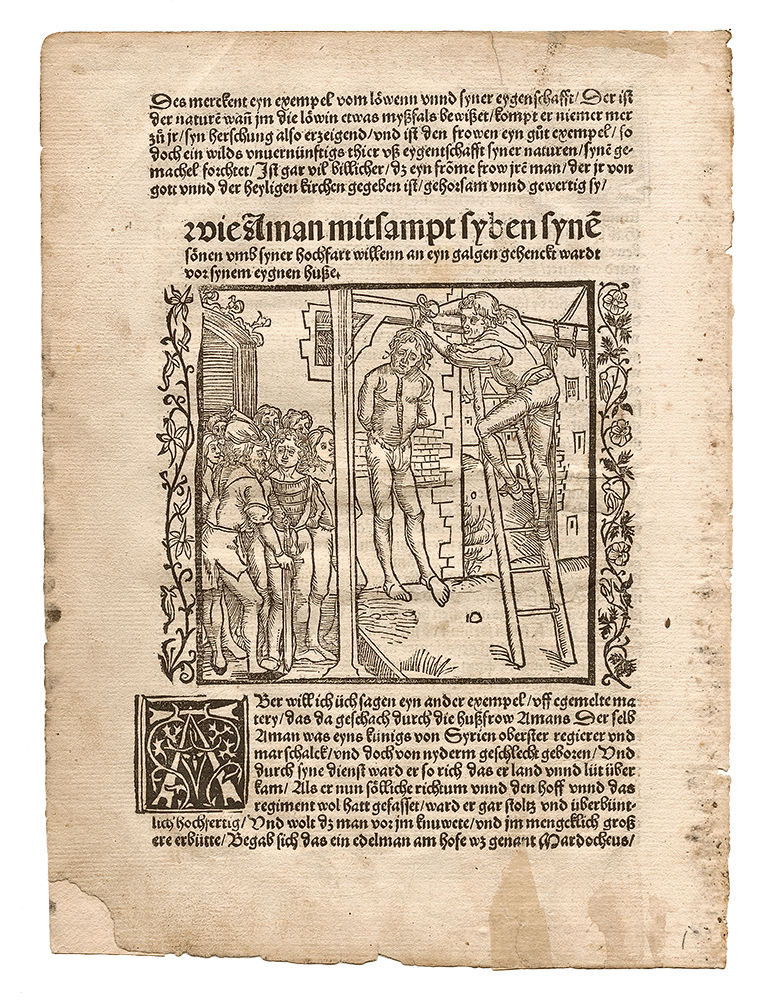 Des merckent eyn exempel vom löwenn vnnd syner eygenschafft/ Der ist
der naturē wañ jm die löwin etwas myßfals bewißet/kompt er niemer mer
zů jr/syn herschung also erzeigend/vnd ist den frowen eyn gůt exempel/ so
doch ein wilds vnuernünftigs thier vß eygentschafft syner naturen/synē ge-
machel forchtet/ Ist gar vil billicher/ dz eyn frōme frow jrē man/der jr von
gott vnnd der heyligen kirchen gegeben ist/gehorsam vnnd gewertig sy/
wie Aman mitsampt syben synē
sönen vmb syner hochfart willenn an eyn galgen gehenckt wardt
vor synem eygnen huße.
ABer will ich üch sagen eyn ander exempel/vff egemelte ma
tery/das da geschach durch die hußfrow Amans Der selb
Aman was eyns künigs von Syrien oberster regierer vnd
marschalck/vnd doch von nyderm geschlecht geboren/ Vnd
durch syne dienst ward er so rich das er land vnnd lüt über
kam/ Als er nun sölliche richtum vnnd den hoff vnnd das
regiment wol hatt gefasset/ward er gar stoltz vnd überbünt-
lich hochfertig/ Vnd wolt dz man vor jm knuwete/vnd jm mengcklich groß
ere erbütte/ Begab sich das ein edelman am hofe wz genant Mardocheus/